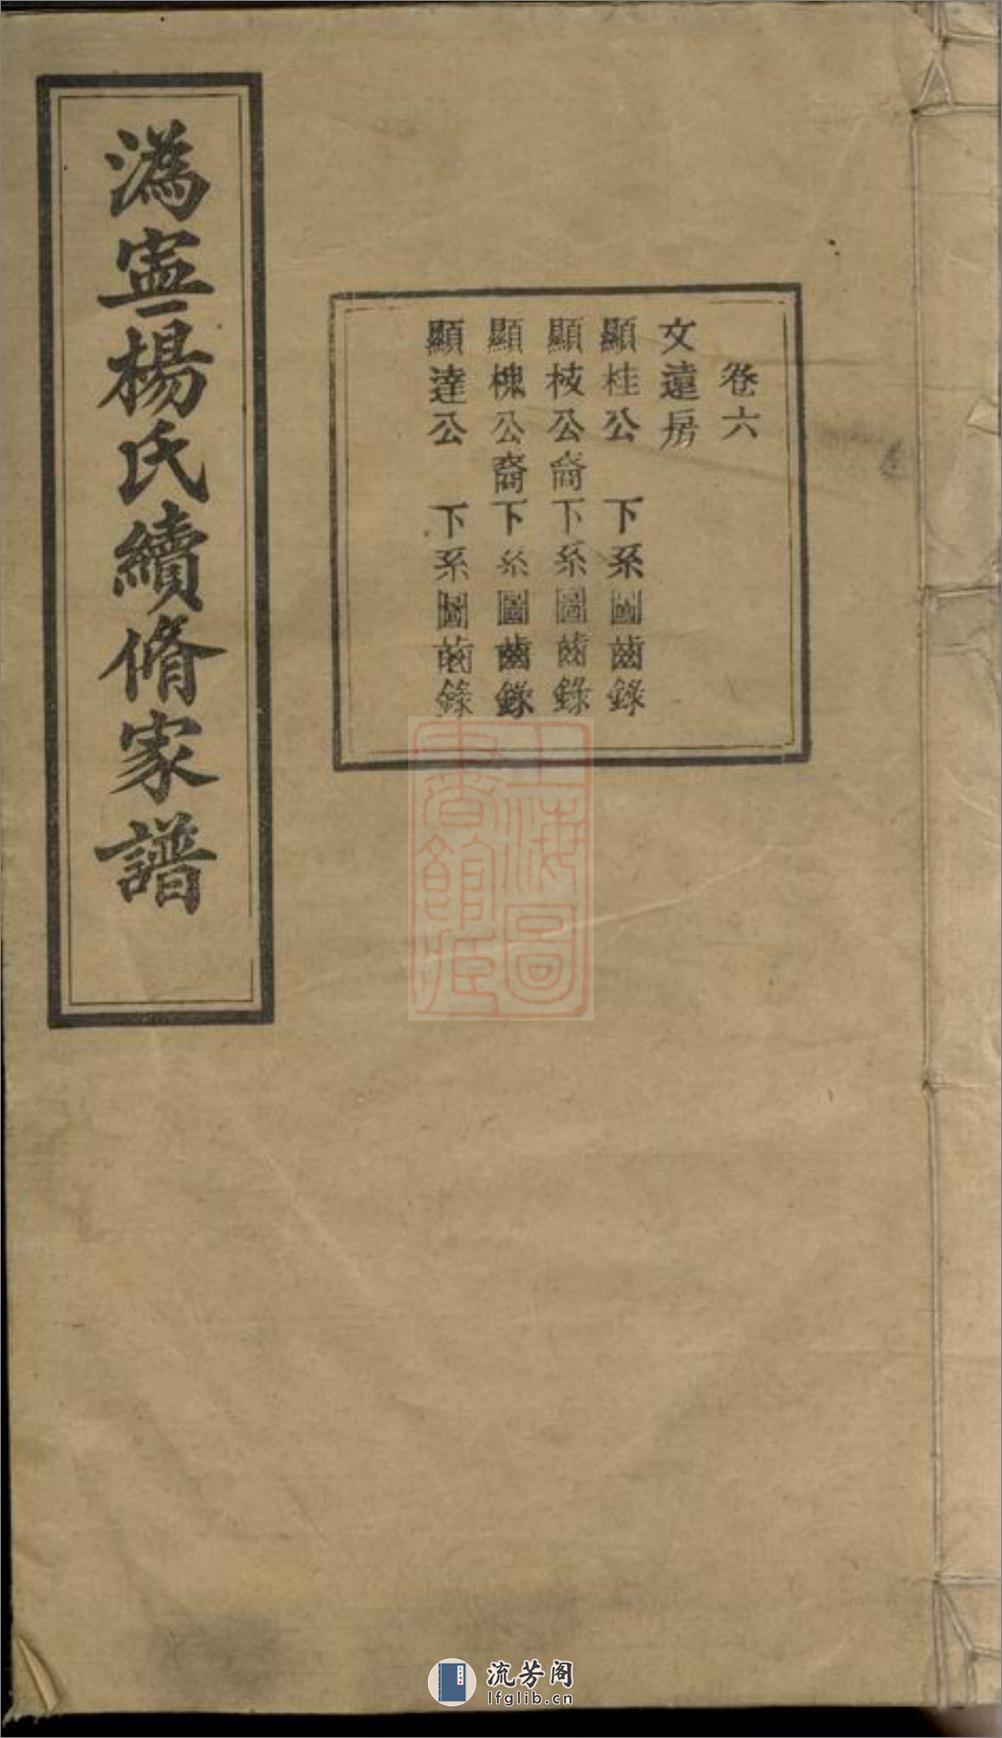 卷六
文遠房
顯桂公 下系圖齒錄
顯枝公裔下系圖齒錄
顯槐公裔下系圖齒錄
顯達公 下系圖齒錄
溈寍楊氏續脩家譜
上海圖
書館藏
流芳阁
lfglib.cn